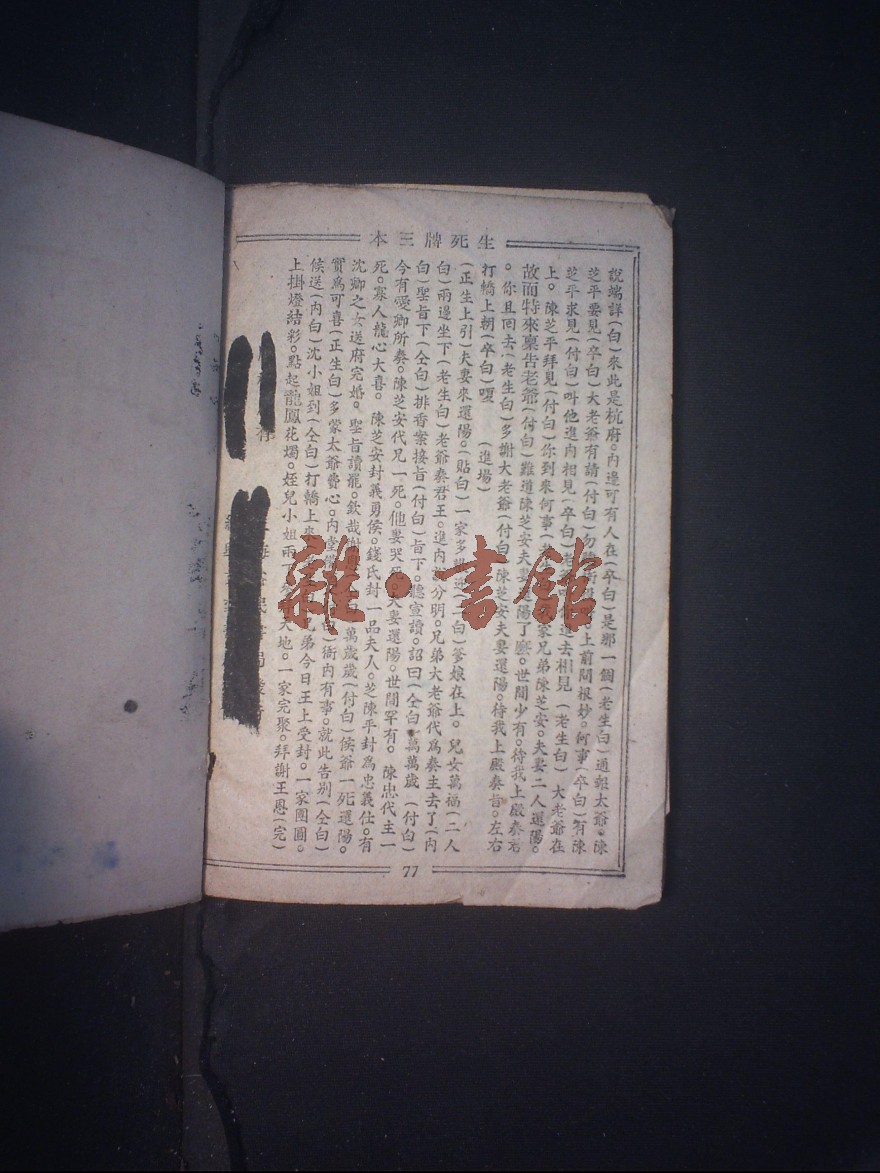 生死牌三本
說端詳(白)來此是杭府。內邊可有人在(卒白)是那一個(老生白)通報太爺。陳
芝平要見(卒白)大老爺有請(付白)上前問根抄。何事(卒白)有陳
芝平求見(付白)叫他進內相見(卒白)老進去相見(老生白)大老爺在
上。陳芝平拜見(付白)你到來何事家兄弟陳芝安。夫妻二人還陽。
故而特來稟告老爺(付白)難道陳芝安夫妻還陽了麽。世間少有。待我上殿奏君
。你且回去(老生白)多謝大老爺(付白)陳芝安夫妻還陽。待我上殿奏旨。左右
打轎上朝(卒白)嗄 (進場)
(正生上引)夫妻來還陽。(貼白)一家多(二白)爹娘在上。兒女萬福(二人
白)兩邊坐下(老生白)老爺奏君王。進內分明。兄弟大老爺代爲奏主去了(內
白)聖旨下(仝白)排香案接旨(付白)旨下。聽宣讀。詔曰(仝白)萬萬歲(付白)
今有愛卿所奏。陳芝安代兄一死。他妻哭死。夫妻還陽。世間罕有。陳忠代主一
死。寡人龍心大喜。陳芝安封義勇侯。錢氏封一品夫人。芝陳平封爲忠義仕。有
沈卿之女送府完婚。聖旨讀罷。欽哉謝萬歲歲(付白)侯爺一死還陽。
實爲可喜(正生白)多蒙太爺費心。內堂白)衙內有事。就此告別(仝白)
候送(內白)沈小姐到(仝白)打轎上來弟今日王上受封。一家團圓。
上掛燈結彩。點起龍鳳花燭。姪兒小姐兩下天地。一家完聚。拜謝王恩(完)
77
雜·書館